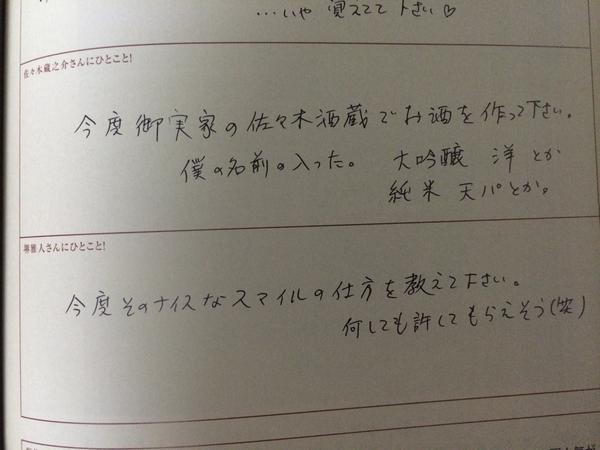 …いや 覚えてて下さい♡
佐々木蔵之介さんにひとこと!
今度御実家の佐々木酒蔵でお酒を作って下さい。
僕の名前の入った。 大吟醸 洋とか
純米 天パとか。
堺雅人さんにひとこと!
今度そのナイスなスマイルの仕方を教えて下さい。
何しても許してもらえそう(笑)